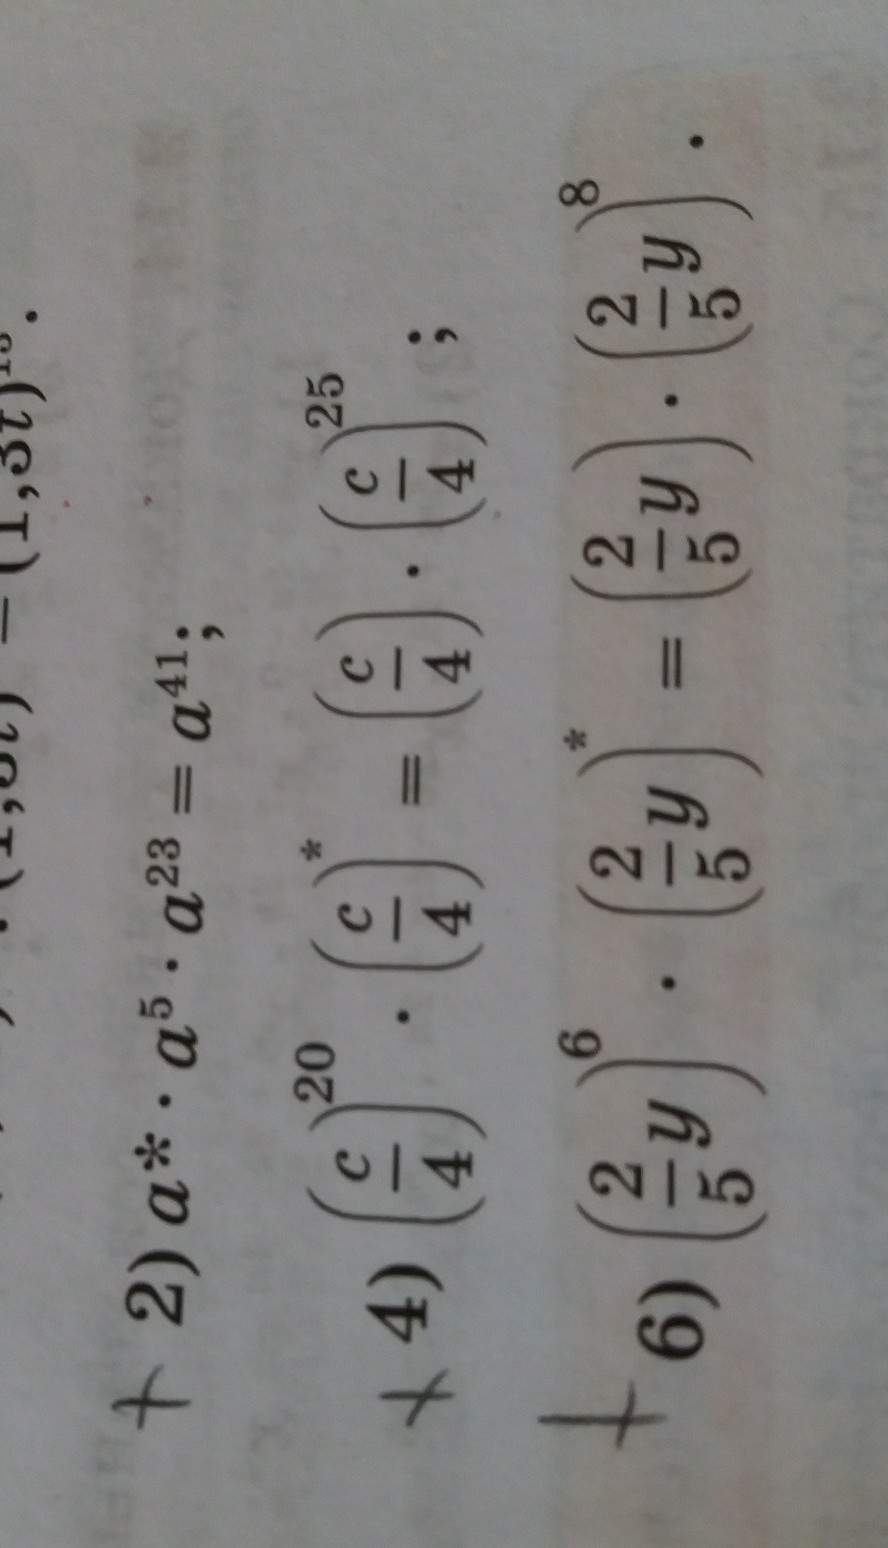 (1,3t)
+ 2) a* · a⁵ · a²³ = a⁴¹;
+ 4) (c/4)²⁰ · (c/4)* = (c/4) · (c/4)²⁵;
+ 6) (2/5 y)⁶ · (2/5 y)* = (2/5 y) · (2/5 y)⁸.